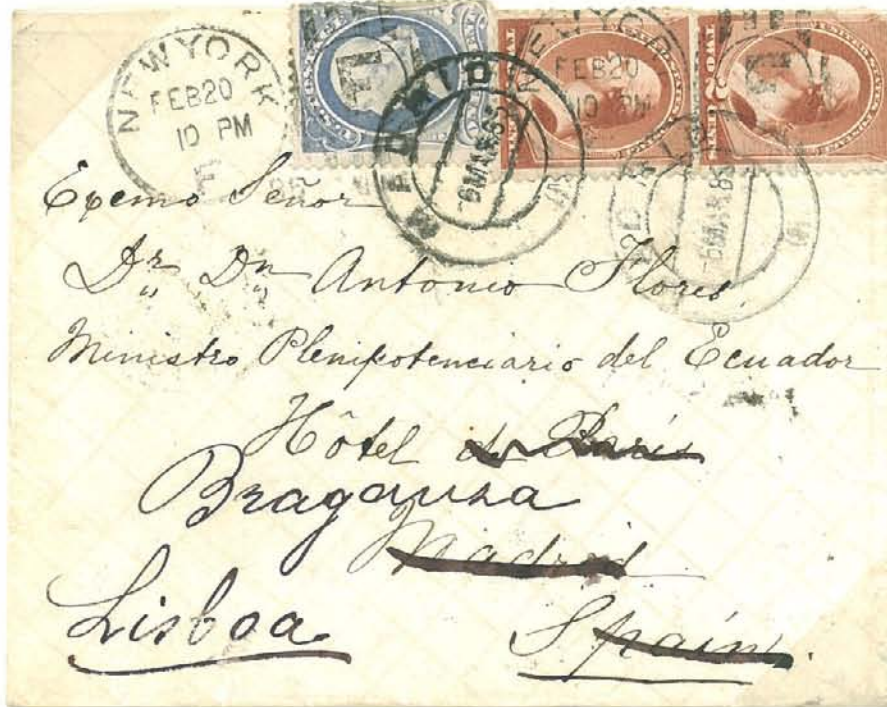 NEW YORK
FEB 20
10 PM
F
MADRID
6 MAR 85
NEW YORK
FEB 20
10 PM
MADRID
6 MAR 85
TWO CENTS
Excmo Señor
Dr. Dn. Antonio Flores
Ministro Plenipotenciario del Ecuador
Hôtel de Paris
Braganza
Madrid
Lisboa
Spain.